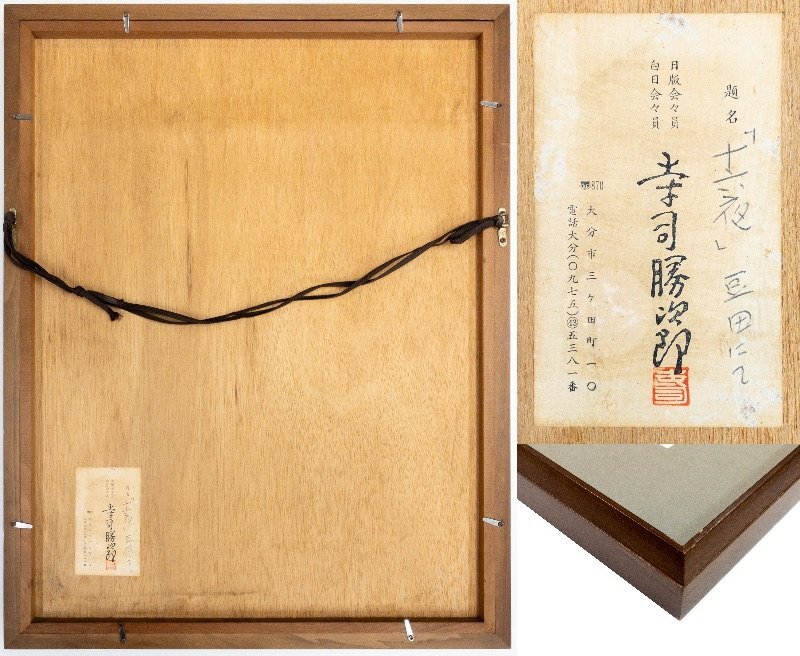 題名「十六夜」豆田にて
日版会々員
白日会々員
幸司勝次郎
870 大分市三ケ田町一〇
電話大分(〇九七五)㊸五三八一番